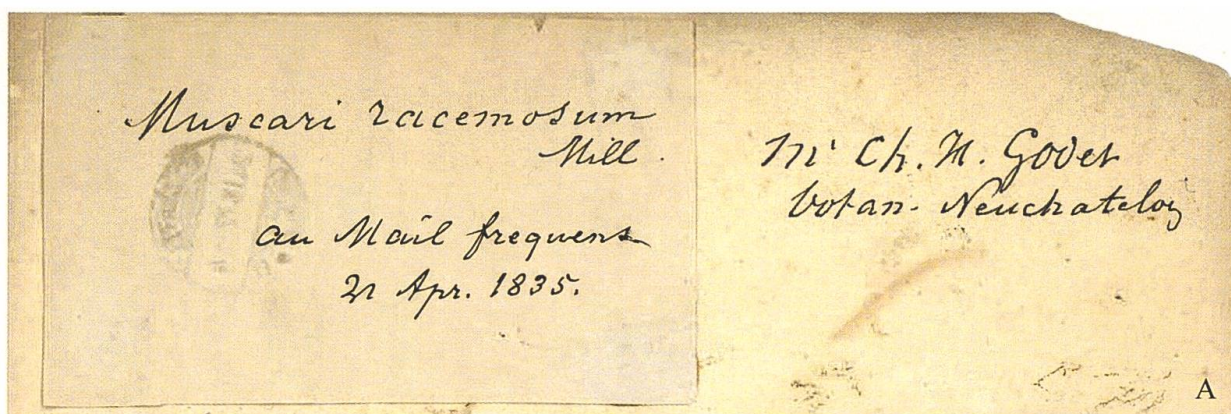 Muscari racemosum
Mill.
au Mail frequens
21 Apr. 1835.
Mr Ch. H. Godet
botan. Neuchateloy
A